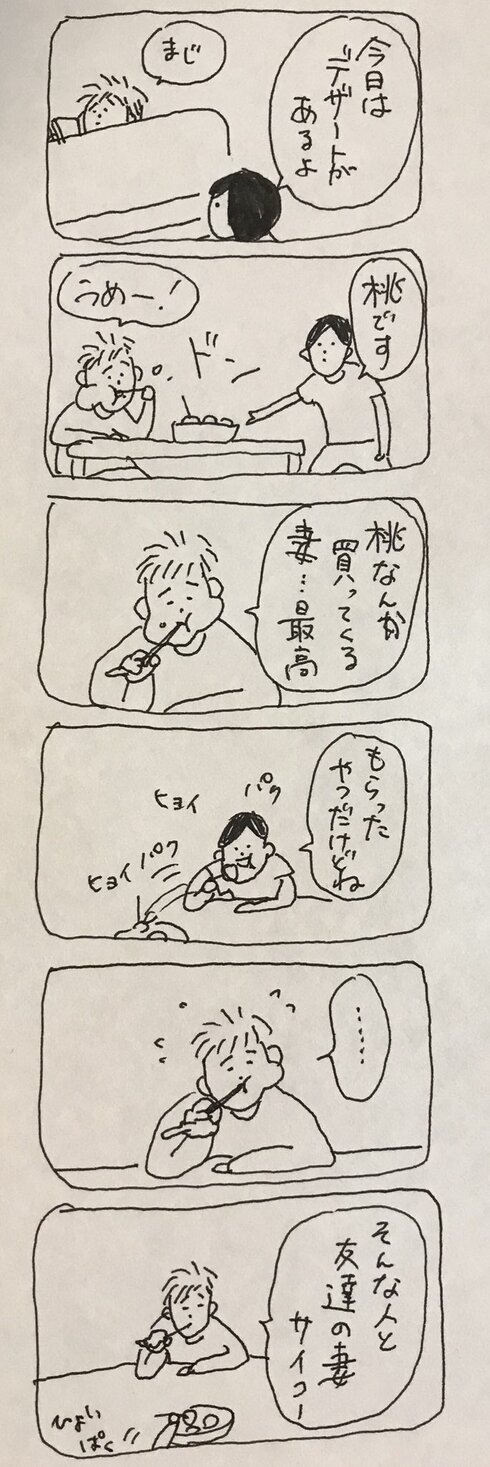 今日は
デザートが
あるよ
まじ
桃です
ドン
うめー!
桃なんか
買ってくる
妻…最高
もらった
やつだけどね
パク
ヒョイ
パク
ヒョイ
……
そんな人と
友達の妻
サイコー
ひょい
ぱく